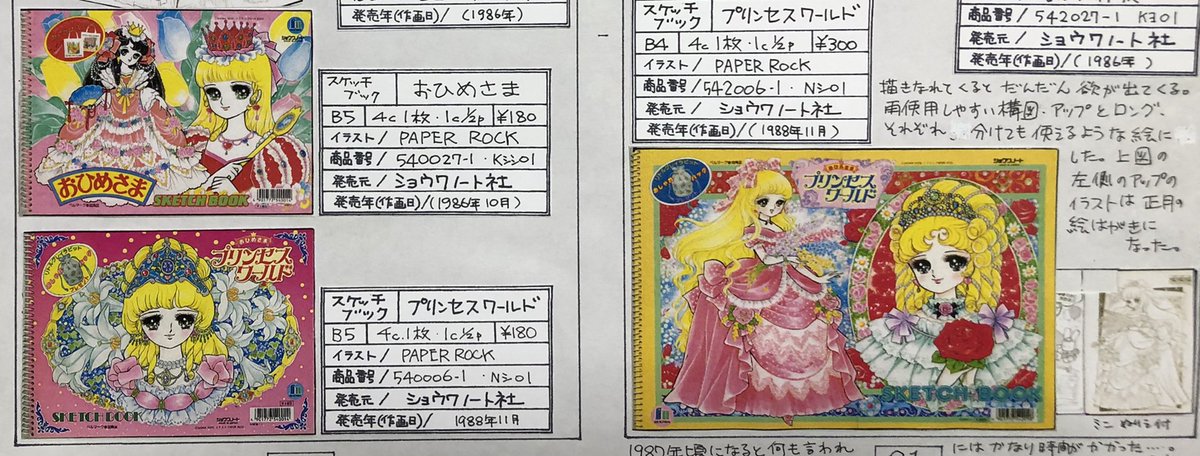 発売年(作画日)/(1986年)
おひめさま
SKETCH BOOK
スケッチブック
おひめさま
B5
4c1枚・1c½p
¥180
イラスト/ PAPER ROCK
商品番号/ 540027-1・Kシ01
発売元/ ショウワノート社
発売年(作画日)/(1986年10月)
おひめさま
プリンセスワールド
SKETCH BOOK
ショウワノート
スケッチブック
プリンセスワールド
B5
4c.1枚・1c½p
¥180
イラスト/ PAPER ROCK
商品番号/ 540006-1・Nシ01
発売元/ ショウワノート社
発売年(作画日)/ 1988年11月
スケッチブック
プリンセスワールド
B4
4c1枚・1c½p
¥300
イラスト/ PAPER ROCK
商品番号/ 542006-1・Nシ01
発売元/ ショウワノート社
発売年(作画日)/(1988年11月)
商品番号/ 542027-1 Kヨ01
発売元/ ショウワノート社
発売年(作画日)/(1986年)
描きなれてくると だんだん 欲が出てくる。
再使用しやすい構図・アップとロング、
それぞれ、分けても使えるような絵に
した。上図の
左側のアップの
イラストは正月の
絵はがきに
なった。
プリンセスワールド
ショウワノート
SKETCH BOOK
ミニ ぬりえ付
1987年頃になると何も言われ
にはかなり時間がかかった…。